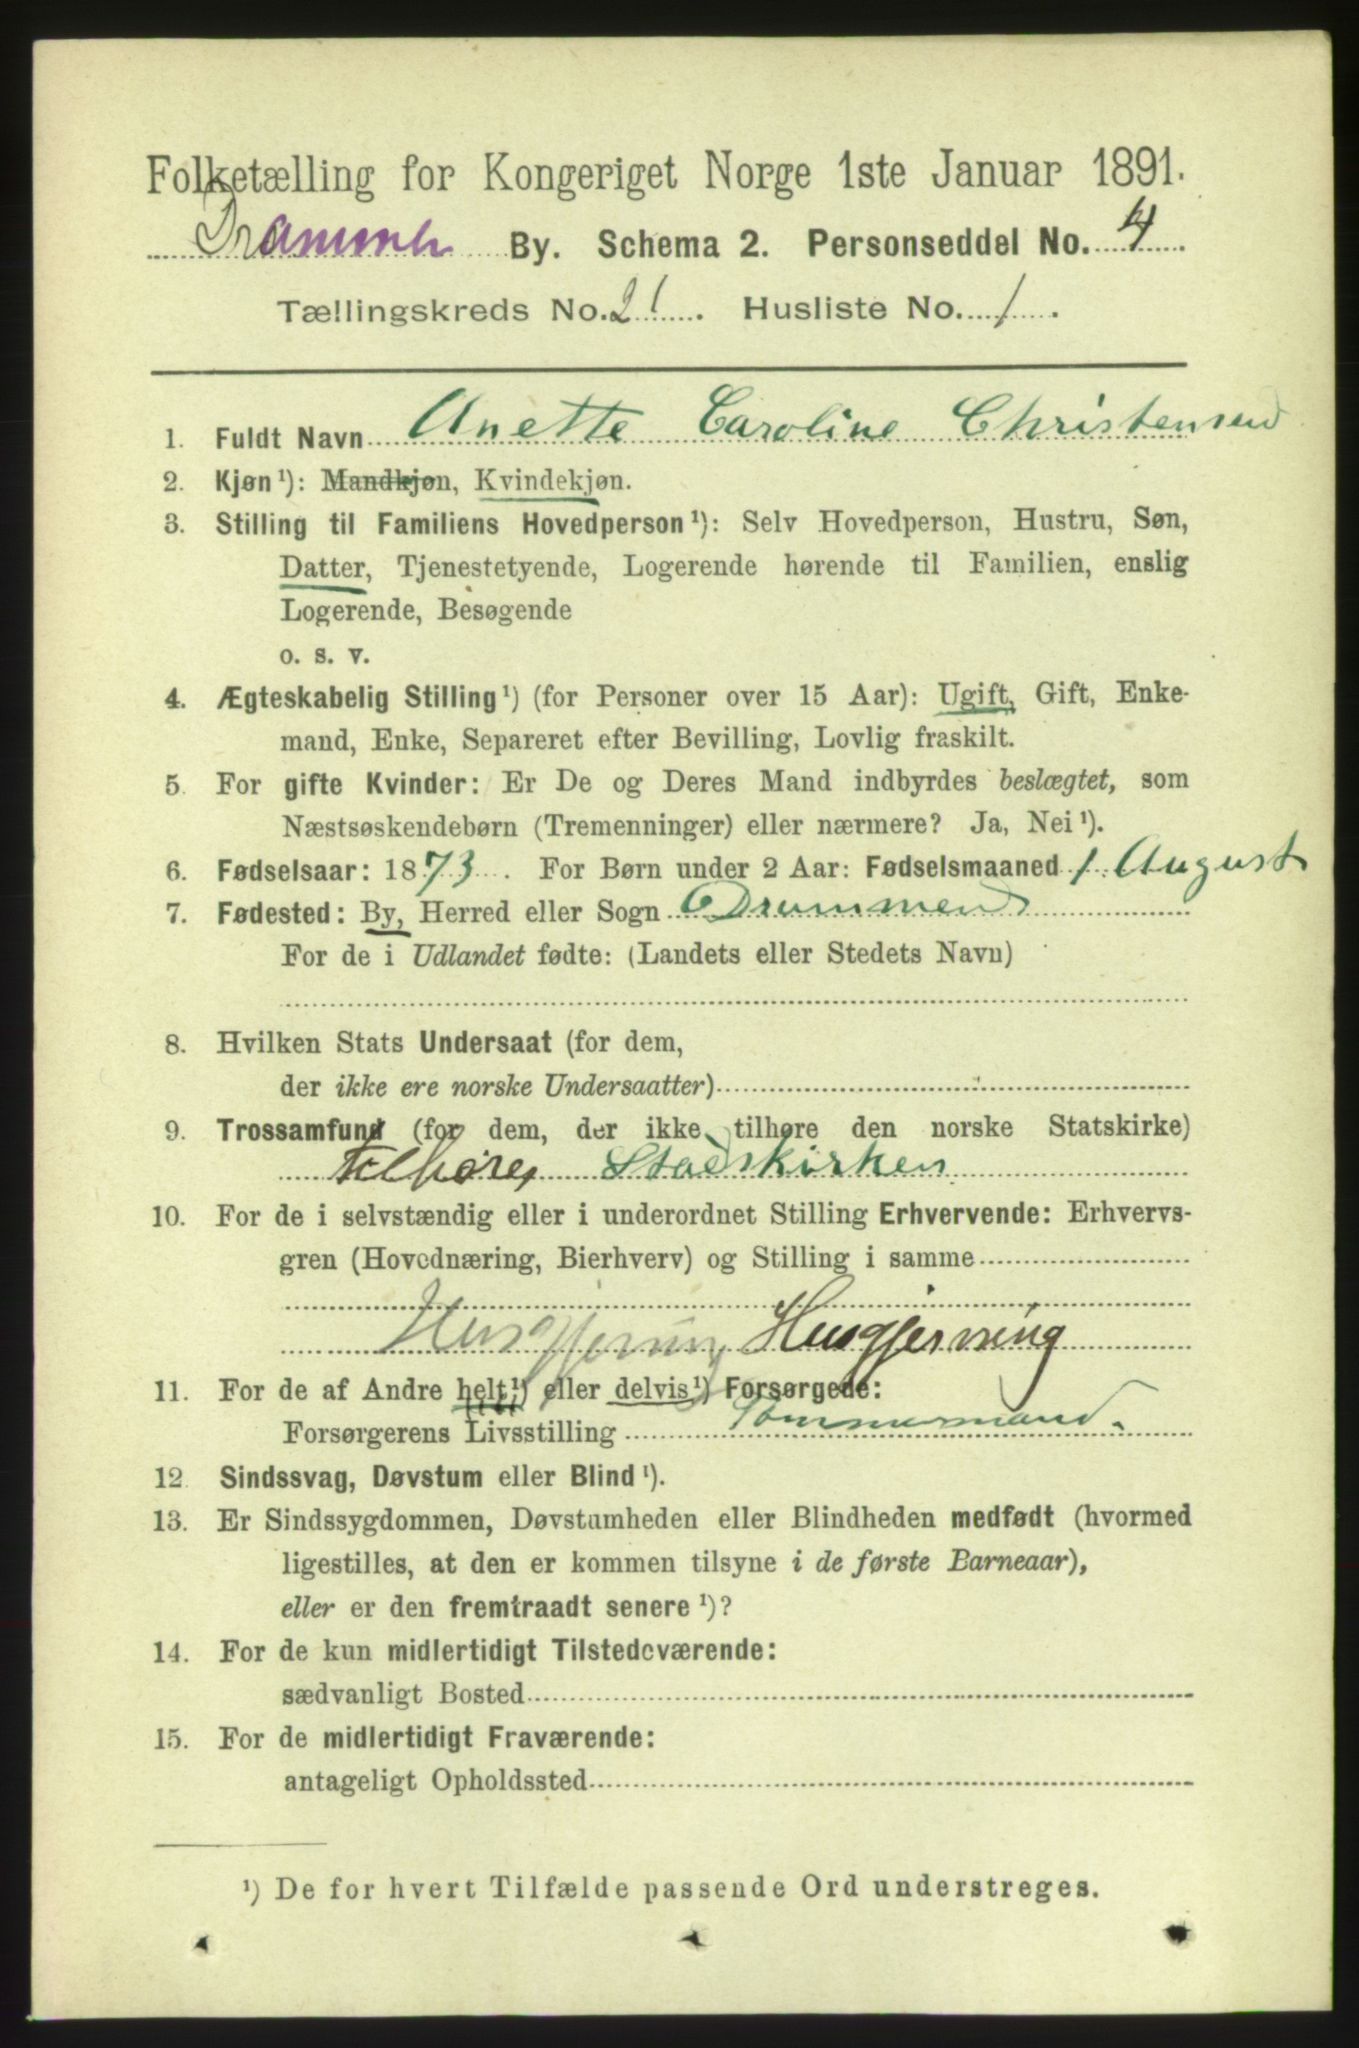 Folketælling for Kongeriget Norge 1ste Januar 1891.
Drammen By. Schema 2. Personseddel No. 4
Tællingskreds No. 21. Husliste No. 1.
1. Fuldt Navn Anette Caroline Christensen
2. Kjøn¹): Mandkjøn, Kvindekjøn.
3. Stilling til Familiens Hovedperson¹): Selv Hovedperson, Hustru, Søn,
Datter, Tjenestetyende, Logerende hørende til Familien, enslig
Logerende, Besøgende
o. s. v.
4. Ægteskabelig Stilling¹) (for Personer over 15 Aar): Ugift, Gift, Enke-
mand, Enke, Separeret efter Bevilling, Lovlig fraskilt.
5. For gifte Kvinder: Er De og Deres Mand indbyrdes beslægtet, som
Næstsøskendebørn (Tremenninger) eller nærmere? Ja, Nei¹).
6. Fødselsaar: 1873. For Børn under 2 Aar: Fødselsmaaned 1 August
7. Fødested: By, Herred eller Sogn Drammen
For de i Udlandet fødte: (Landets eller Stedets Navn)
8. Hvilken Stats Undersaat (for dem,
der ikke ere norske Undersaatter)
9. Trossamfund (for dem, der ikke tilhøre den norske Statskirke)
tilhører Stadskirken
10. For de i selvstændig eller i underordnet Stilling Erhvervende: Erhvervs-
gren (Hovednæring, Bierhverv) og Stilling i samme
Husgjerning Husgjerning
11. For de af Andre helt¹) eller delvis¹) Forsørgede:
Forsørgerens Livsstilling Tømmermand.
12. Sindssvag, Døvstum eller Blind¹).
13. Er Sindssygdommen, Døvstumheden eller Blindheden medfødt (hvormed
ligestilles, at den er kommen tilsyne i de første Barneaar),
eller er den fremtraadt senere¹)?
14. For de kun midlertidigt Tilstedeværende:
sædvanligt Bosted
15. For de midlertidigt Fraværende:
antageligt Opholdssted
¹) De for hvert Tilfælde passende Ord understreges.